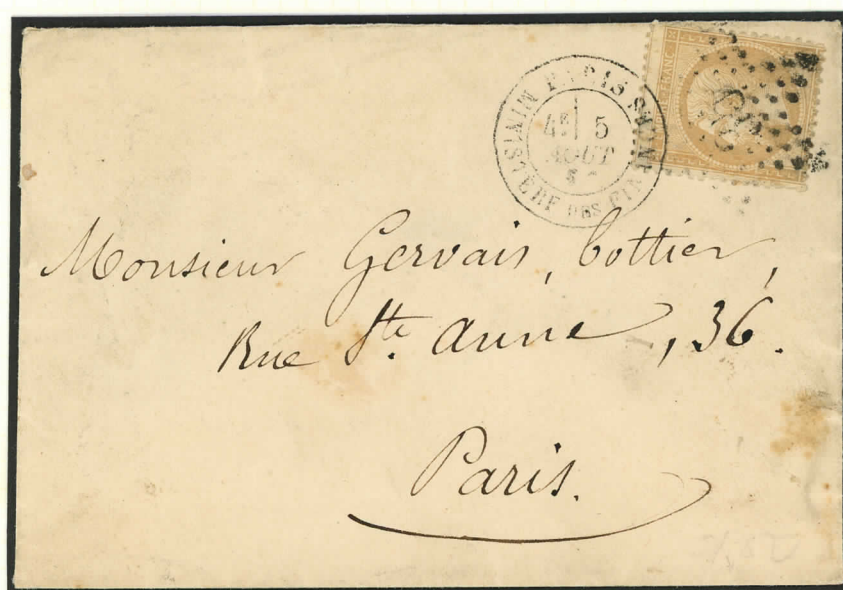 PARIS
MINISTERE DES FINANCES
4E 5
AOUT
FRANC
Monsieur Gervais, bottier,
Rue Ste. Anne, 36.
Paris.